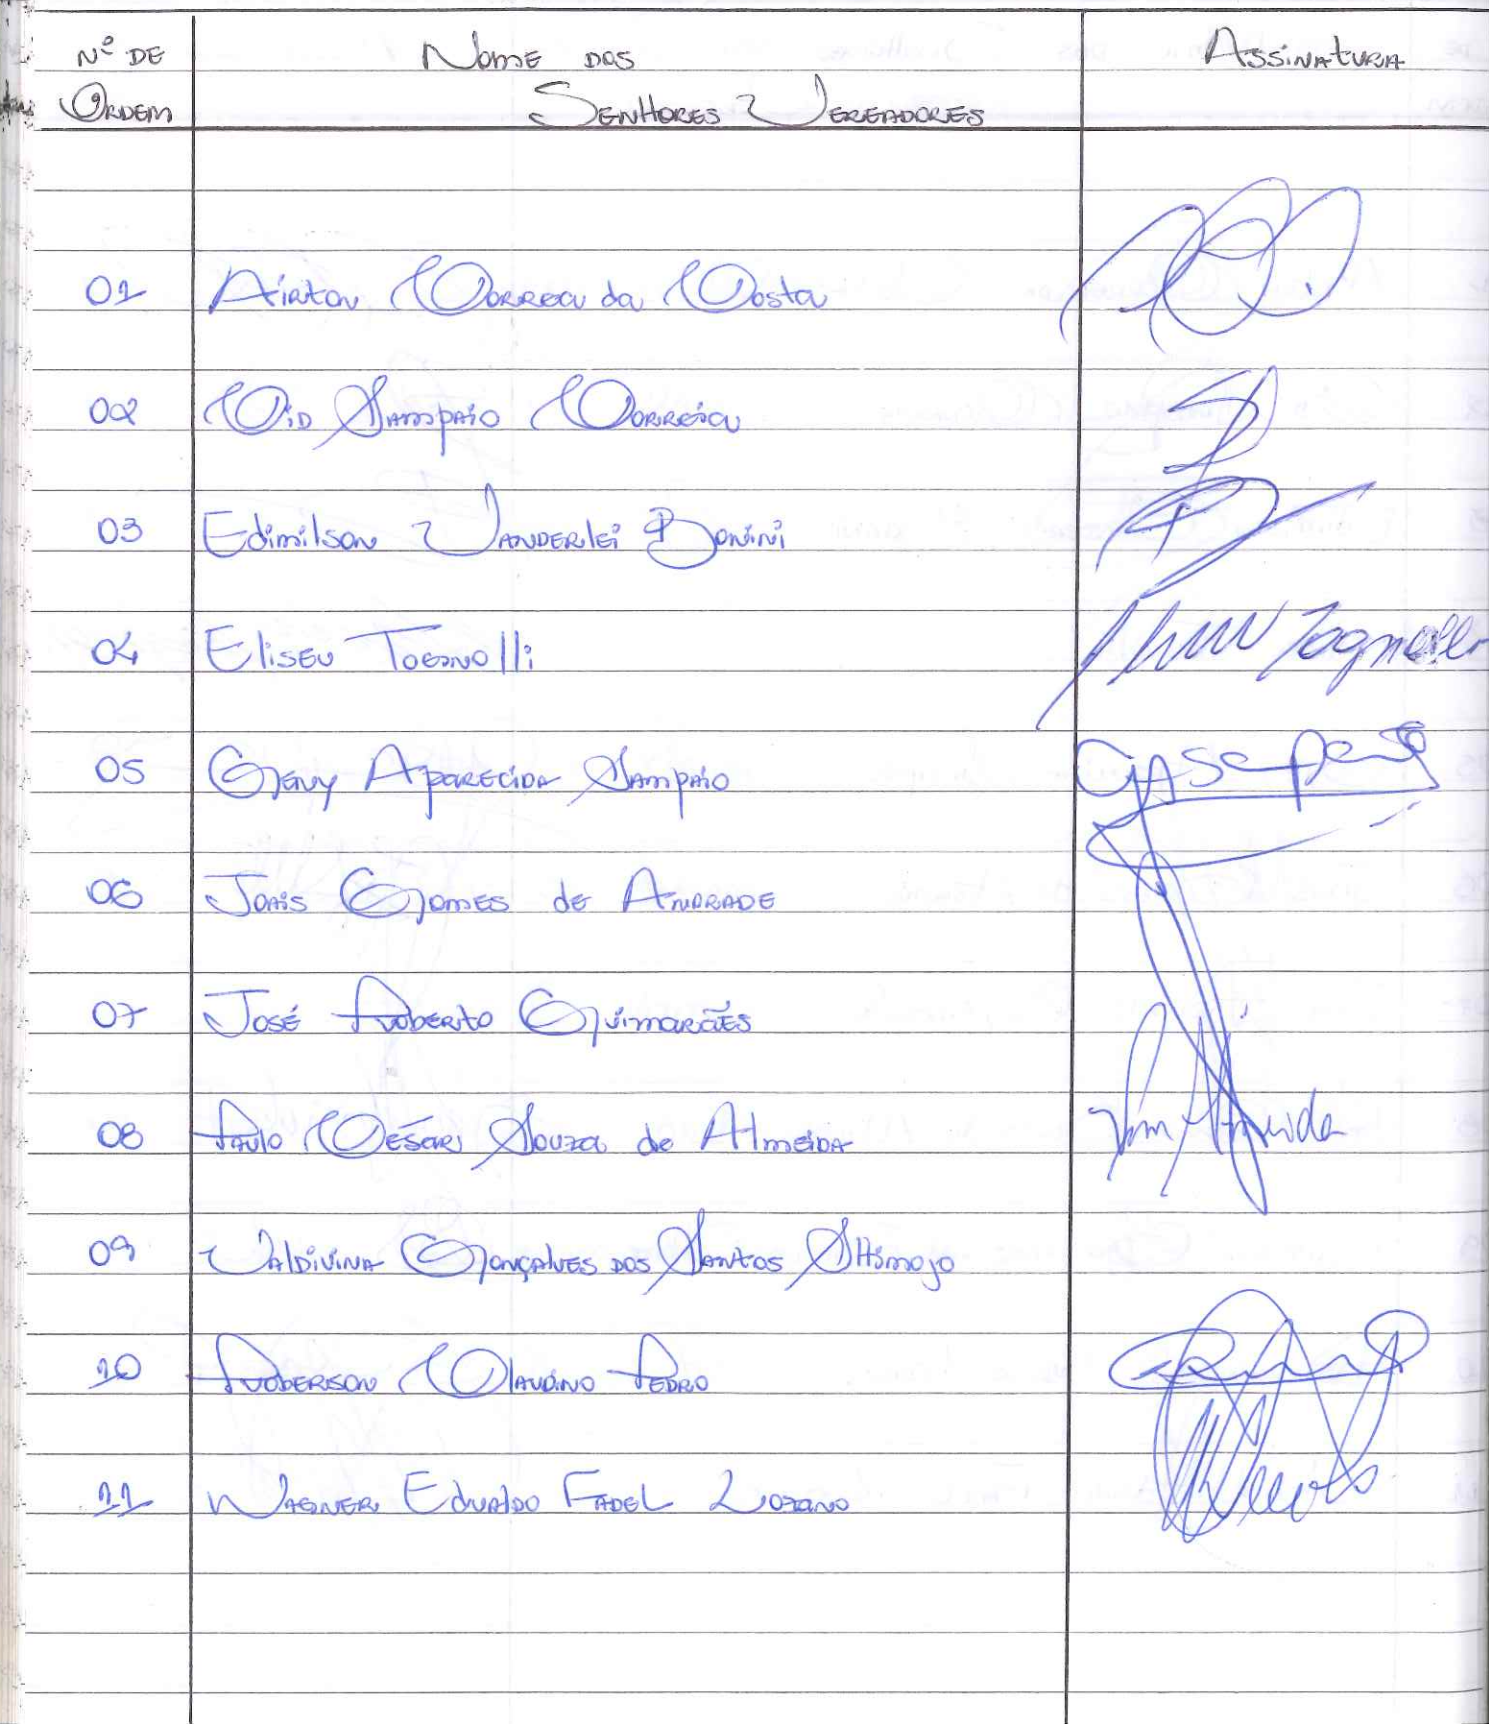 Nº DE Nome dos Assinatura
Ordem Senhores Vereadores
01 Airton Correa da Costa
02 Cid Sampaio Correia
03 Edimilson Vanderlei Bonini
04 Eliseu Tognolli
05 Geny Aparecida Sampaio
06 Joais Gomes de Andrade
07 José Roberto Guimarães
08 Paulo César Souza de Almeida
09 Valdivina Gonçalves dos Santos Shimojo
10 Roberson Claudino Pedro
11 Wagner Edvaldo Fadel Lozano